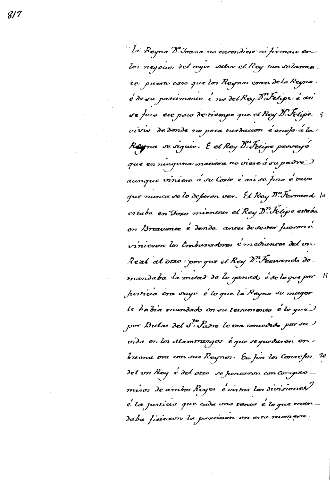 817
la Reyna Dª Juana no entendiese ni firmase en
los negocios del reyno salvo el Rey tan solamen-
te, puesto caso que los Reynos eran de la Reyna
é de su patrimonio é no del Rey Dⁿ Felipe é así
se fizo ese poco de tiempo que el Rey Dⁿ Felipe
vivió de donde no poca turbacion é enojo á la
Reyna se siguió. E el Rey Dⁿ Felipe
que en ninguna manera no viese á su padre
aunque viniese á su Corte é así se fizo é
que nunca se lo dejaron ver. E el Rey Dⁿ Fernando
estaba en mientras el Rey Dⁿ Felipe estaba
en Benavente é donde antes de se ver fueron é
vinieron los Embajadores é mensageros del un
Real al otro porque el Rey Dⁿ Fernando de-
mandaba la mitad de lo ganado, é de lo que por
justicia era suyo é lo que la Reyna su muger
le habia mandado en su testamento é lo que
por Bulas del Sto Padre le era concedido por su
vida en los Maestrazgos é que se quedasen en-
ora con sus Reynos. En fin los Consejos
del un Rey é del otro se juntaron con compro-
misos de ambos Reyes é vistas las divisiones
é la justicia que cada uno tenia é lo que deman-
daba ficieron la particion en esta manera.